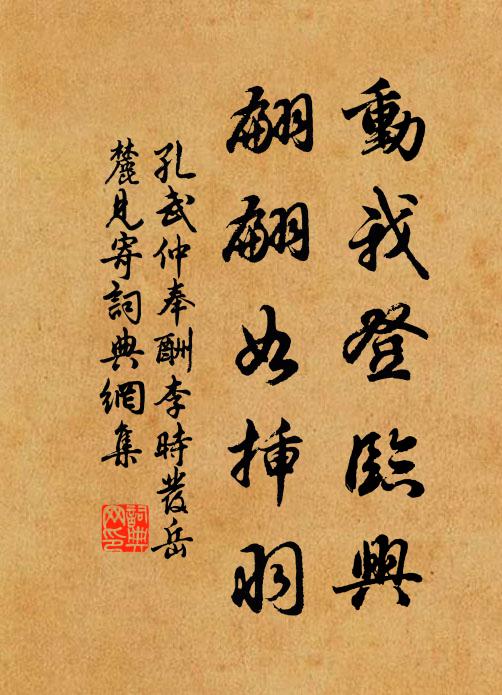 動我登臨興
翩翩如插羽
孔武仲奉酬李時發岳
麓見寄詞典網集
詞典網印